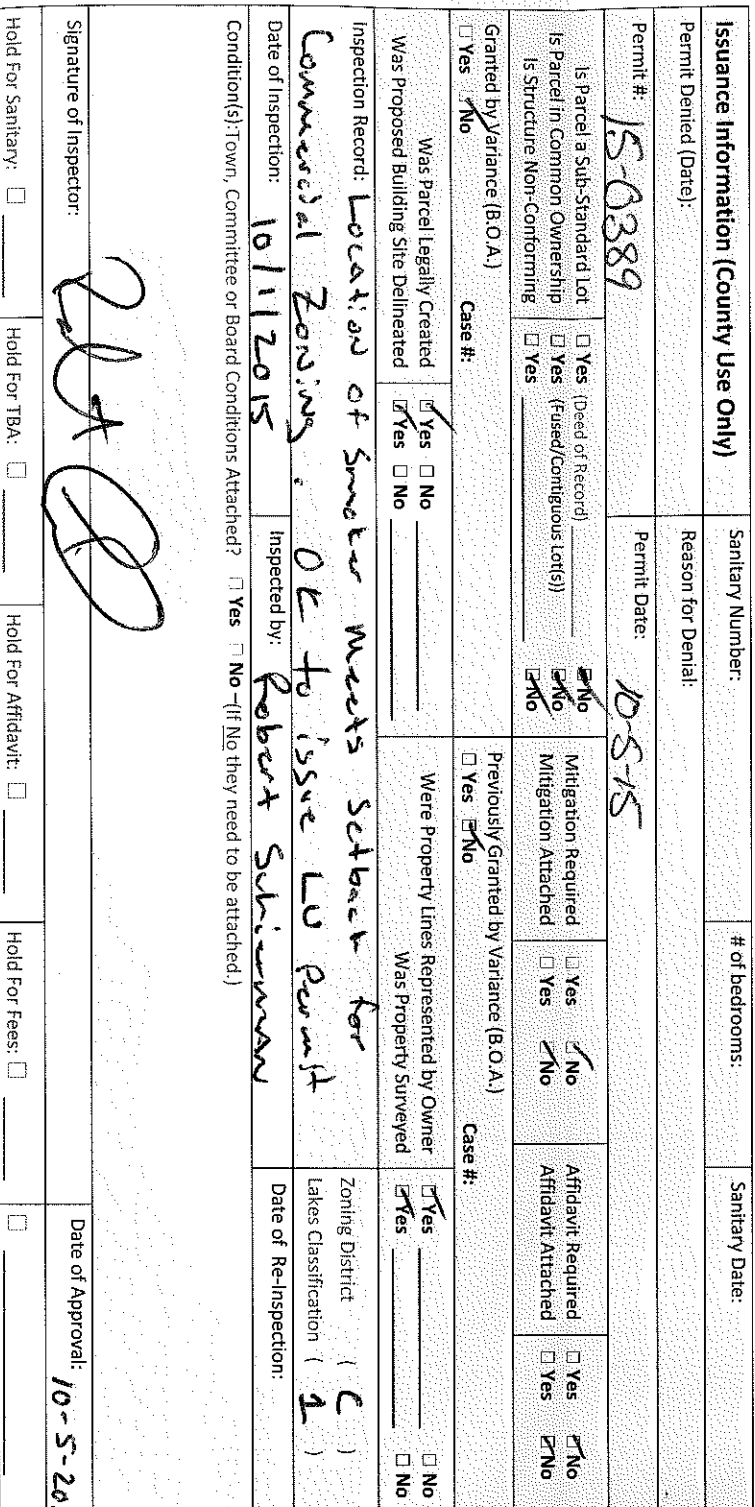 Issuance Information (County Use Only)
Sanitary Number:
# of bedrooms:
Sanitary Date:
Permit Denied (Date):
Reason for Denial:
Permit #: 15-0389
Permit Date: 10-5-15
Is Parcel a Sub-Standard Lot ☐ Yes (Deed of Record) ☑ No
Is Parcel in Common Ownership ☐ Yes (Fused/Contiguous Lot(s)) ☑ No
Is Structure Non-Conforming ☐ Yes ☑ No
Mitigation Required ☐ Yes ☑ No
Mitigation Attached ☐ Yes ☑ No
Affidavit Required ☐ Yes ☑ No
Affidavit Attached ☐ Yes ☑ No
Granted by Variance (B.O.A.)
☐ Yes ☑ No Case #:
Previously Granted by Variance (B.O.A.)
☐ Yes ☑ No Case #:
Was Parcel Legally Created ☑ Yes ☐ No
Was Proposed Building Site Delineated ☑ Yes ☐ No
Were Property Lines Represented by Owner ☑ Yes ☐ No
Was Property Surveyed ☑ Yes ☐ No
Inspection Record: Location of Smoker meets setback for
Commercial Zoning. OK to issue LU Permit
Zoning District ( C )
Lakes Classification ( 1 )
Date of Inspection: 10/1/2015
Inspected by: Robert Schierman
Date of Re-Inspection:
Condition(s): Town, Committee or Board Conditions Attached? ☐ Yes ☐ No –(If No they need to be attached.)
Signature of Inspector:
Date of Approval: 10-5-20
Hold For Sanitary: ☐
Hold For TBA: ☐
Hold For Affidavit: ☐
Hold For Fees: ☐
☐